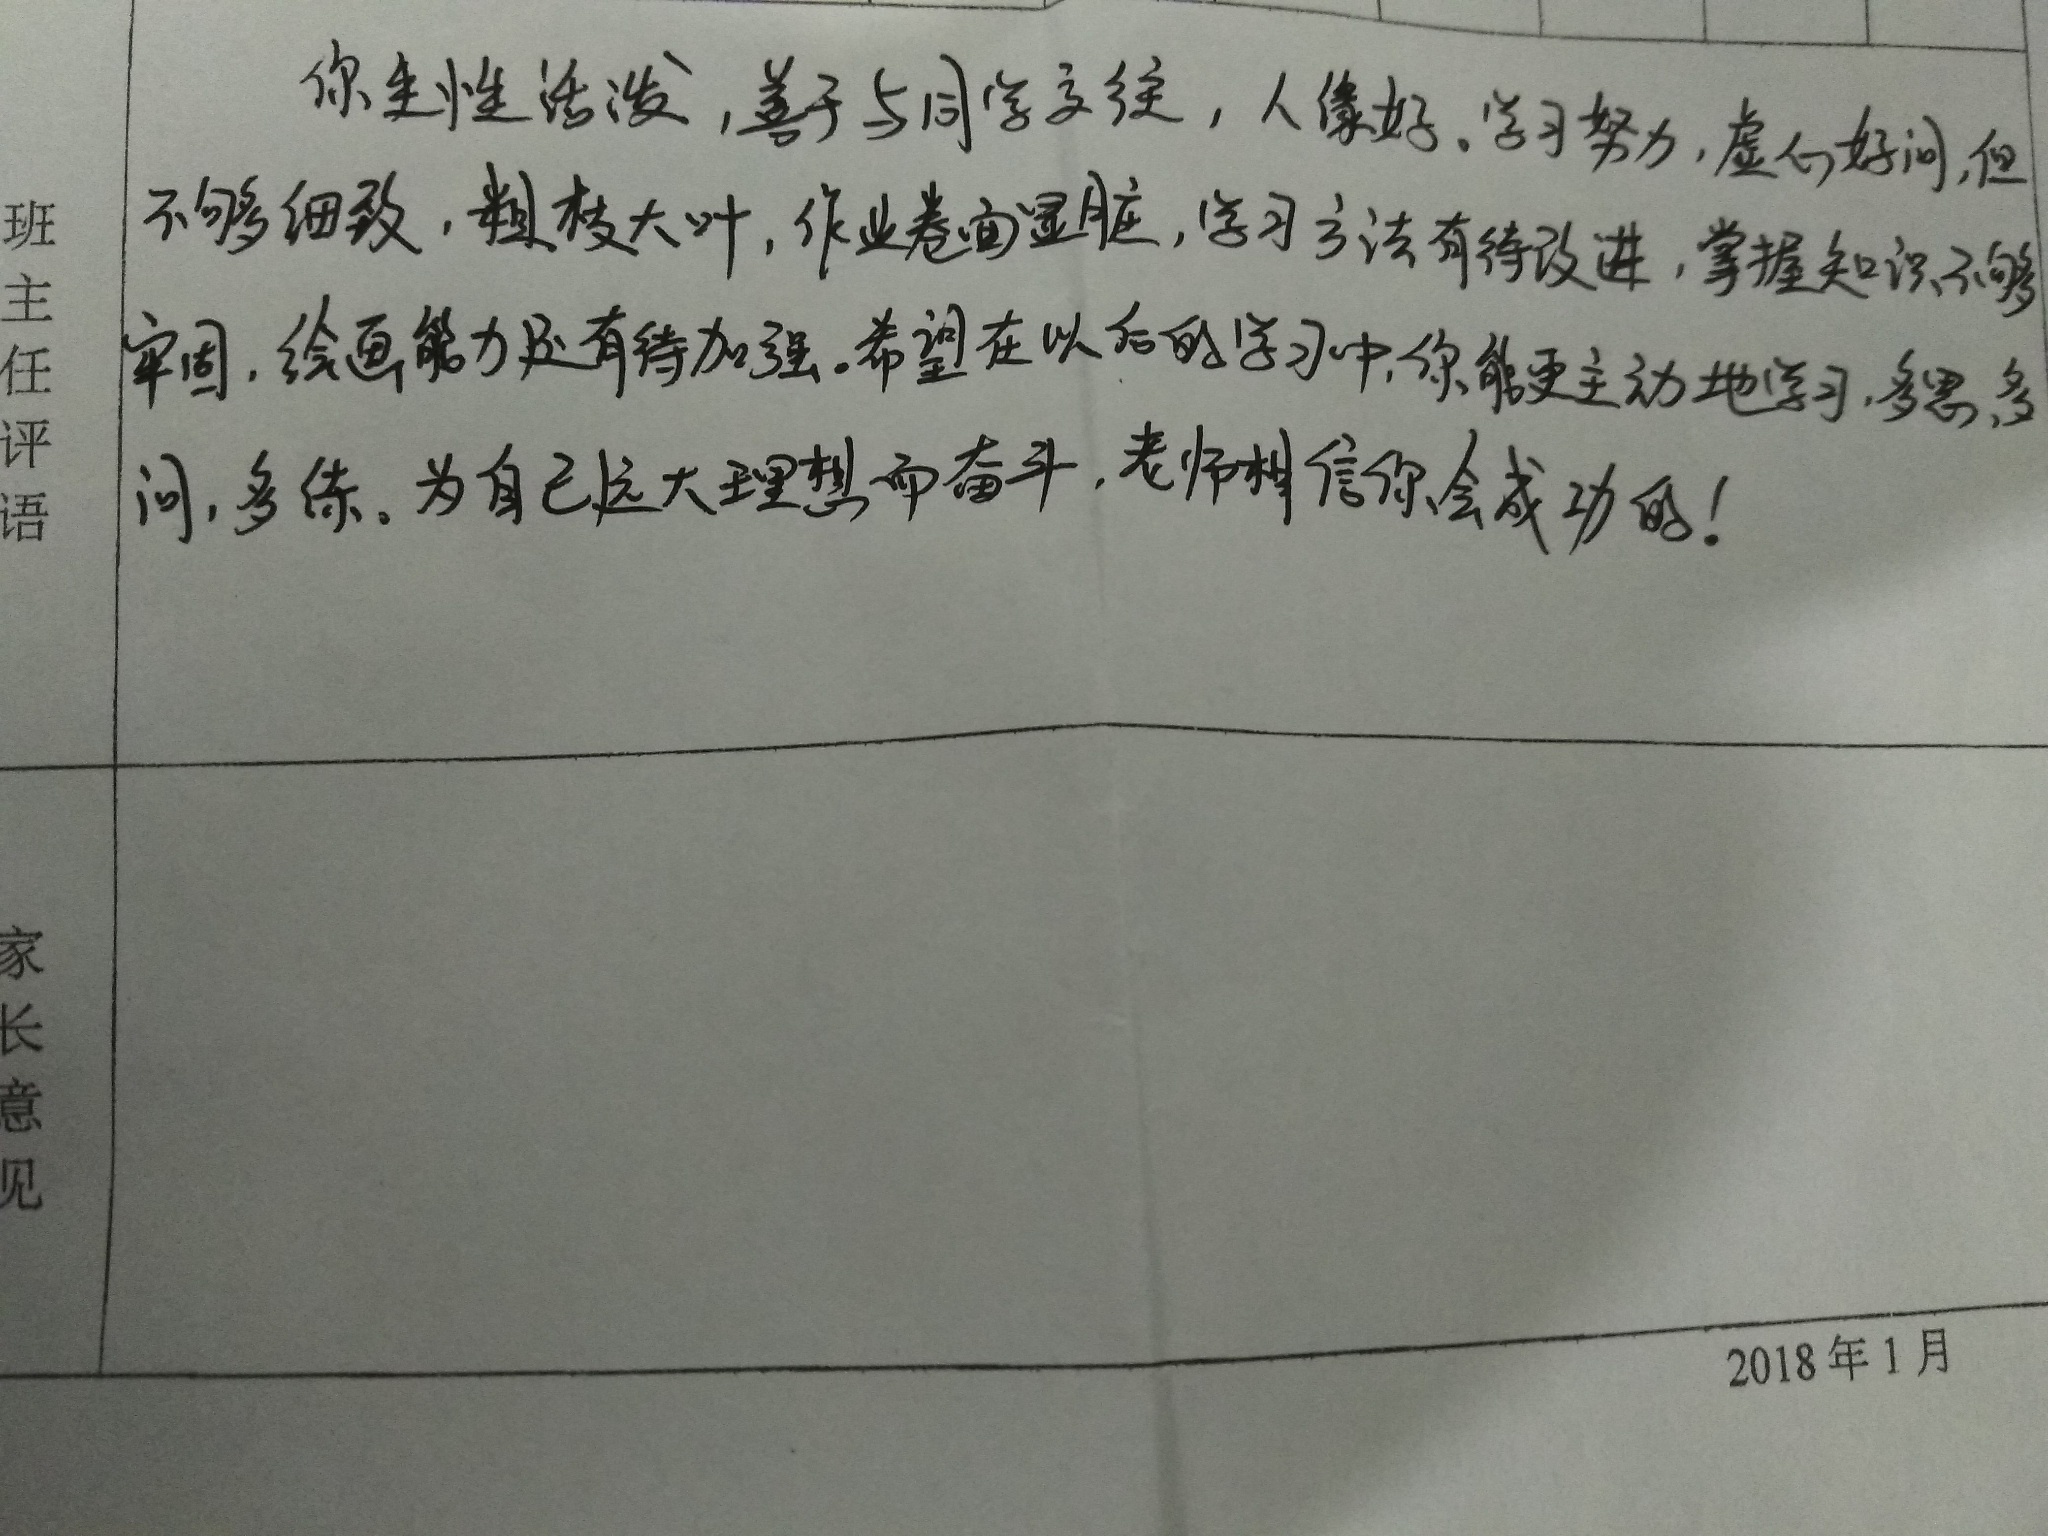 班主任评语
你生性活泼，善于与同学交往，人缘好。学习努力，虚心好问，但
不够细致，粗枝大叶，作业卷面显脏，学习方法有待改进，掌握知识不够
牢固，绘画能力还有待加强。希望在以后的学习中，你能更主动地学习，多思，多
问，多练。为自己远大理想而奋斗，老师相信你会成功的！
家长意见
2018年1月